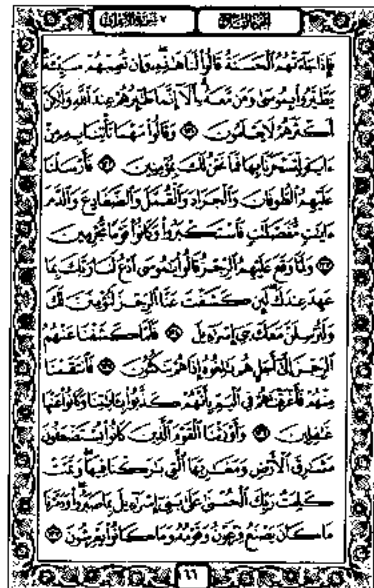 فَإِذَا جَاءَتْهُمُ الْحَسَنَةُ قَالُوا لَنَا هَٰذِهِ وَإِن تُصِبْهُمْ سَيِّئَةٌ
يَطَّيَّرُوا بِمُوسَىٰ وَمَن مَّعَهُ أَلَا إِنَّمَا طَائِرُهُمْ عِندَ اللَّهِ وَلَٰكِنَّ
أَكْثَرَهُمْ لَا يَعْلَمُونَ ﴿١٣١﴾ وَقَالُوا مَهْمَا تَأْتِنَا بِهِ مِنْ
ءَايَةٍ لِّتَسْحَرَنَا بِهَا فَمَا نَحْنُ لَكَ بِمُؤْمِنِينَ ﴿١٣٢﴾ فَأَرْسَلْنَا
عَلَيْهِمُ الطُّوفَانَ وَالْجَرَادَ وَالْقُمَّلَ وَالضَّفَادِعَ وَالدَّمَ
ءَايَاتٍ مُّفَصَّلَاتٍ فَاسْتَكْبَرُوا وَكَانُوا قَوْمًا مُّجْرِمِينَ
﴿١٣٣﴾ وَلَمَّا وَقَعَ عَلَيْهِمُ الرِّجْزُ قَالُوا يَا مُوسَى ادْعُ لَنَا رَبَّكَ بِمَا
عَهِدَ عِندَكَ لَئِن كَشَفْتَ عَنَّا الرِّجْزَ لَنُؤْمِنَنَّ لَكَ
وَلَنُرْسِلَنَّ مَعَكَ بَنِي إِسْرَاءِيلَ ﴿١٣٤﴾ فَلَمَّا كَشَفْنَا عَنْهُمُ
الرِّجْزَ إِلَىٰ أَجَلٍ هُم بَالِغُوهُ إِذَا هُمْ يَنكُثُونَ ﴿١٣٥﴾ فَانتَقَمْنَا
مِنْهُمْ فَأَغْرَقْنَاهُمْ فِي الْيَمِّ بِأَنَّهُمْ كَذَّبُوا بِآيَاتِنَا وَكَانُوا عَنْهَا
غَافِلِينَ ﴿١٣٦﴾ وَأَوْرَثْنَا الْقَوْمَ الَّذِينَ كَانُوا يُسْتَضْعَفُونَ
مَشَارِقَ الْأَرْضِ وَمَغَارِبَهَا الَّتِي بَارَكْنَا فِيهَا وَتَمَّتْ
كَلِمَتُ رَبِّكَ الْحُسْنَىٰ عَلَىٰ بَنِي إِسْرَاءِيلَ بِمَا صَبَرُوا وَدَمَّرْنَا
مَا كَانَ يَصْنَعُ فِرْعَوْنُ وَقَوْمُهُ وَمَا كَانُوا يَعْرِشُونَ ﴿١٣٧﴾
١٦٦